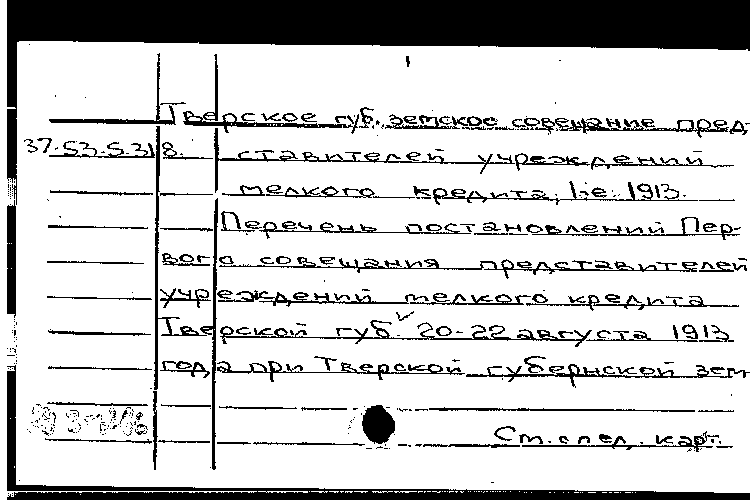 Тверское губ. земское совещание пред-
37.53.5.318. ставителей учреждений
мелкого кредита, I-е. 1913.
Перечень постановлений Пер-
вого совещания представителей
учреждений мелкого кредита
Тверской губ. 20-22 августа 1913
года при Тверской губернской зем
См. след. карт.